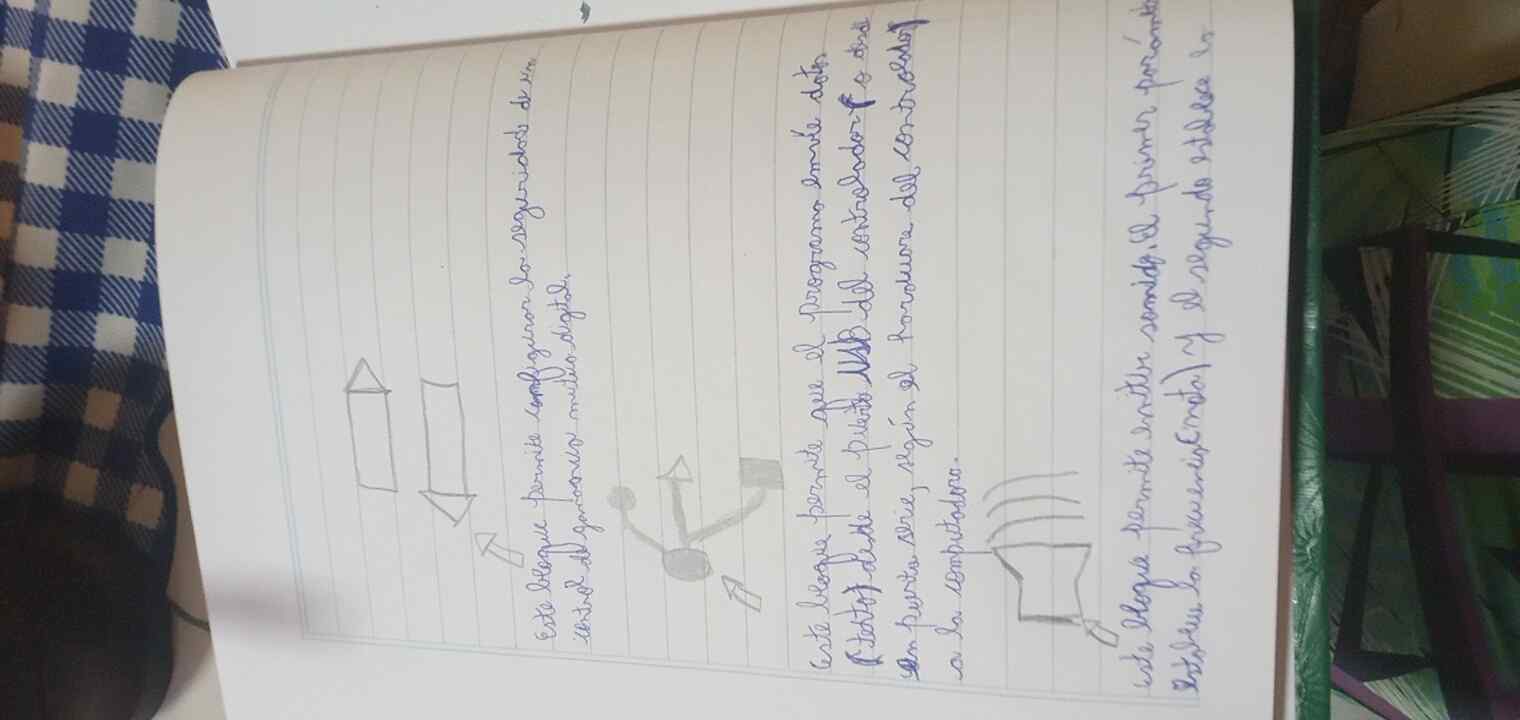 Este bloque permite configurar la seguridad de una
control de garanarez mutuo digital.
Este bloque permite que el programa envíe datos
(texto) desde el puerto USB del controlador, o desde
un puerto serie, según el hardware del controlador,
a la computadora.
Este bloque permite emitir sonido, el primer parámetro
establece la frecuencia(nota) y el segundo establece la